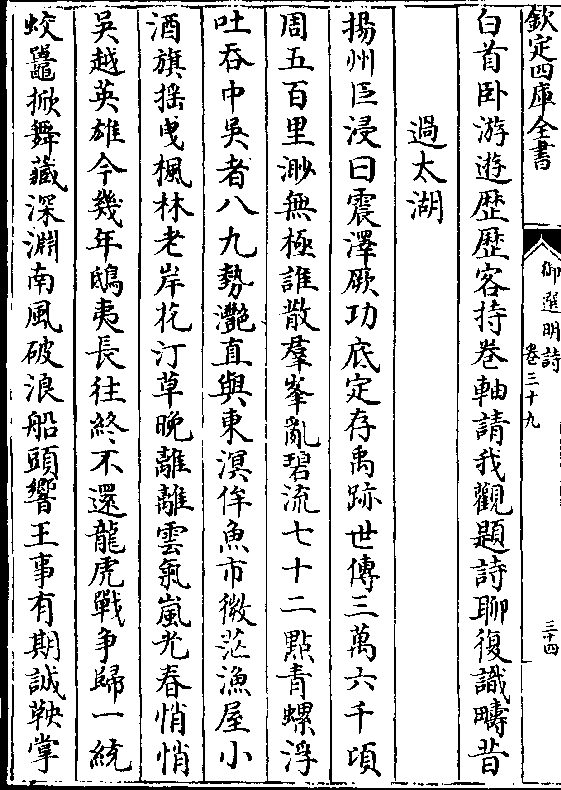 欽定四庫全書
御選明詩
卷三十九
三十四
白首卧游遊歴歴客持卷軸請我觀題詩聊復識疇昔
過太湖
揚州巨浸曰震澤厥功底定存禹跡世傳三萬六千頃
周五百里渺無極誰散羣峯亂碧流七十二點青螺浮
吐吞中吳者八九勢灧直與東溟侔魚市微茫漁屋小
酒旗揺曵楓林老岸花汀草晚離離雲氣嵐光春悄悄
吳越英雄今幾年鴟夷長往終不還龍虎戰爭歸一統
蛟鼉掀舞藏深淵南風破浪船頭響王事有期誠鞅掌